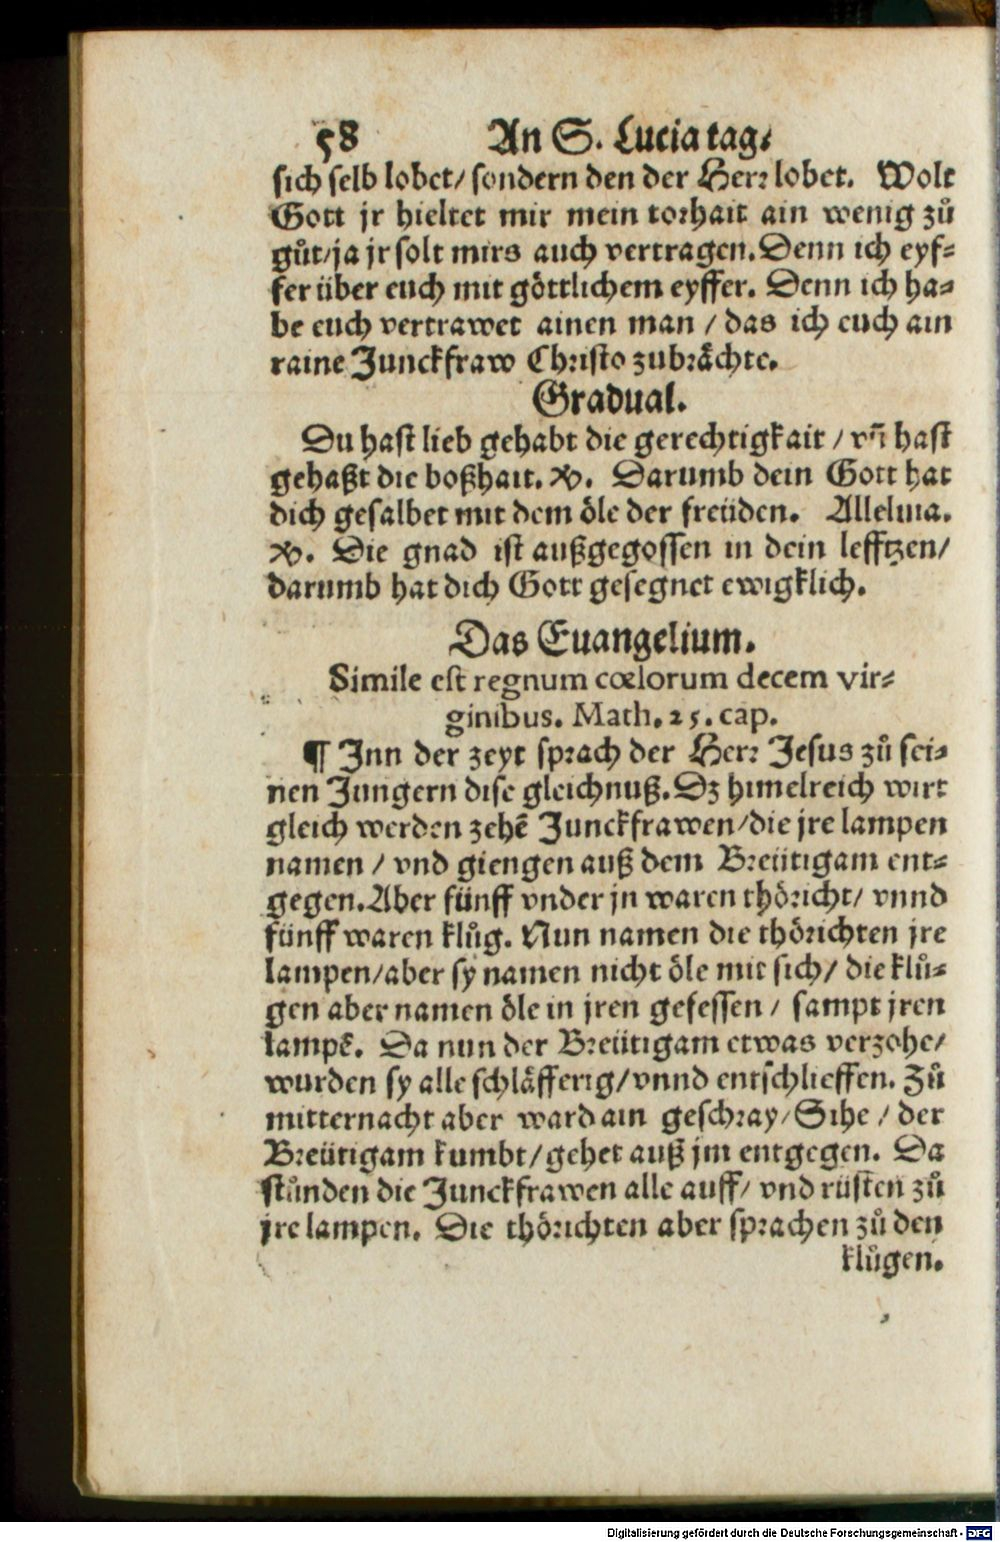 58 An S. Lucia tag/
sich selb lobet/ sondern den der Herr lobet. Wolt
Gott jr hieltet mir mein torhait ain wenig zů
gůt/ja jr solt mirs auch vertragen. Denn ich eyf-
fer über euch mit göttlichem eyffer. Denn ich ha-
be euch vertrawet ainen man / das ich euch ain
raine Junckfraw Christo zubrächte.
Gradual.
Du hast lieb gehabt die gerechtigkait / vñ hast
gehaßt die boßhait. ℣. Darumb dein Gott hat
dich gesalbet mit dem öle der freüden. Alleluia.
℣. Die gnad ist außgegossen in dein lefftzen/
darumb hat dich Gott gesegnet ewigklich.
Das Euangelium.
Simile est regnum cœlorum decem vir-
ginibus. Math. 25. cap.
¶ Inn der zeyt sprach der Herr Jesus zů sei-
nen Jungern dise gleichnuß. Dz himelreich wirt
gleich werden zehē Junckfrawen/die jre lampen
namen / vnd giengen auß dem Breütigam ent-
gegen. Aber fünff vnder jn waren thöricht/ vnnd
fünff waren klůg. Nun namen die thörichten jre
lampen/aber sy namen nicht öle mit sich/ die klů-
gen aber namen öle in jren gefessen / sampt jren
lampē. Da nun der Breütigam etwas verzohe/
wurden sy alle schläfferig/vnnd entschlieffen. Zů
mitternacht aber ward ain geschray/Sihe / der
Breütigam kumbt/gehet auß jm entgegen. Da
stůnden die Junckfrawen alle auff/ vnd rüsten zů
jre lampen. Die thörichten aber sprachen zů den
klůgen.
Digitalisierung gefördert durch die Deutsche Forschungsgemeinschaft - DFG